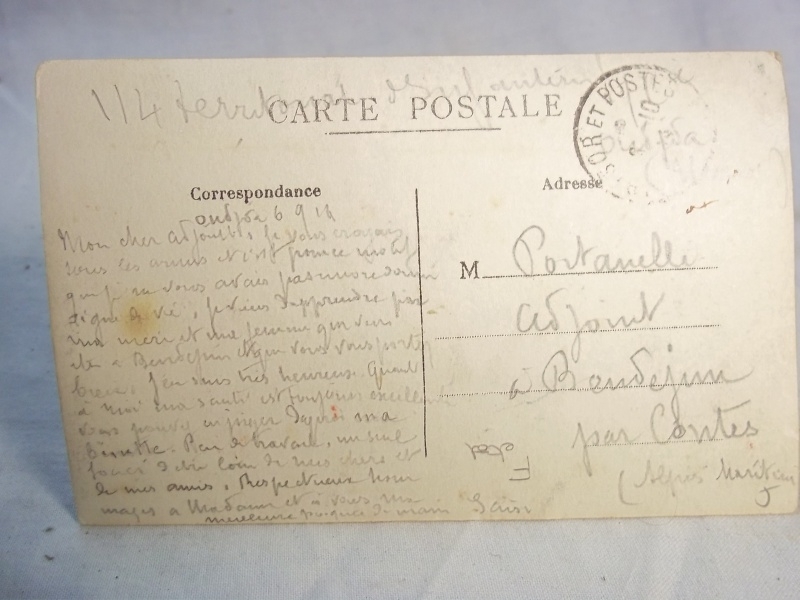 114 territorial d'Infanterie
CARTE POSTALE
TRESOR ET POSTES
Correspondance
Adresse
Oudjda 6 9 14
Mon cher adjoint, je vous croyais
sous les armes et c'est pour ce motif
que je ne vous avais pas encore donné
signe de vie, je viens d'apprendre par
ma mère et ma femme que vous
êtes à Bendejun et que vous vous portez
bien. J'en suis très heureux. Quant
à moi ma santé est toujours excellente
vous pouvez en juger d'après ma
binette. Peu de travail, un seul
souci d'être loin de mes chers et
de mes amis. Respectueux hom
mages à Madame et à vous ma
meilleure poignée de main
M Portanelle
adjoint
à Bendejun
par Contes
(Alpes Maritimes)